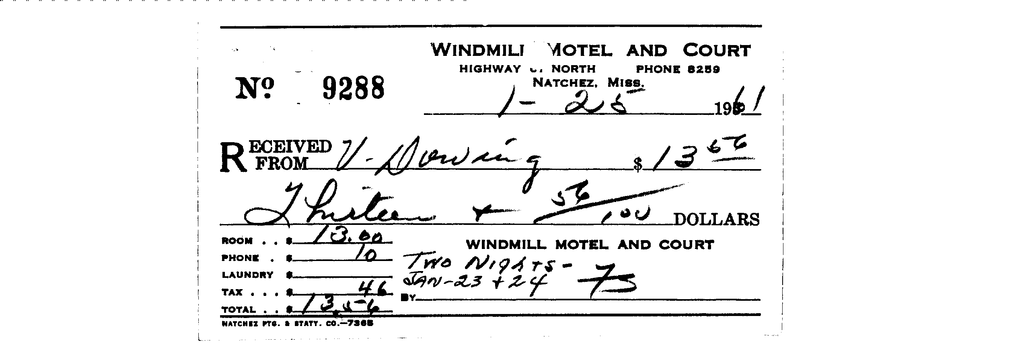 WINDMILL MOTEL AND COURT
HIGHWAY NORTH PHONE 8259
NATCHEZ, MISS.
No 9288
1-25 1961
RECEIVED FROM V. Dowing $ 13 56
Thirteen + 56/100 DOLLARS
ROOM . . $ 13.00
WINDMILL MOTEL AND COURT
PHONE . $ 10
Two Nights-
LAUNDRY $
JAN-23 + 24
TAX . . . $ 46
BY
TOTAL . . $ 13.56
NATCHEZ PTG. & STATY. CO.—7365